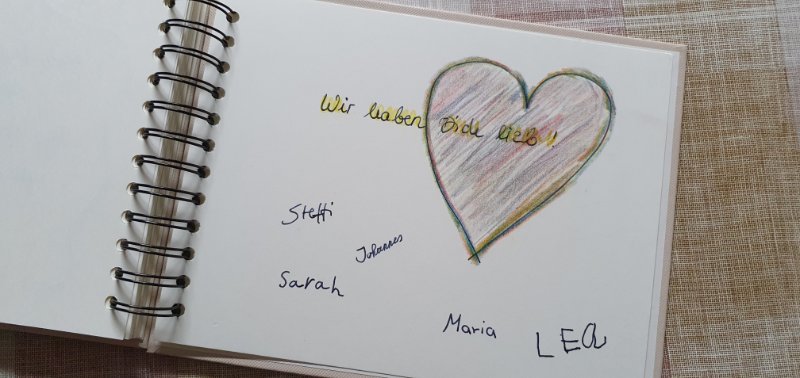 Wir haben Dich lieb!
Steffi
Johannes
Sarah
Maria
LEA